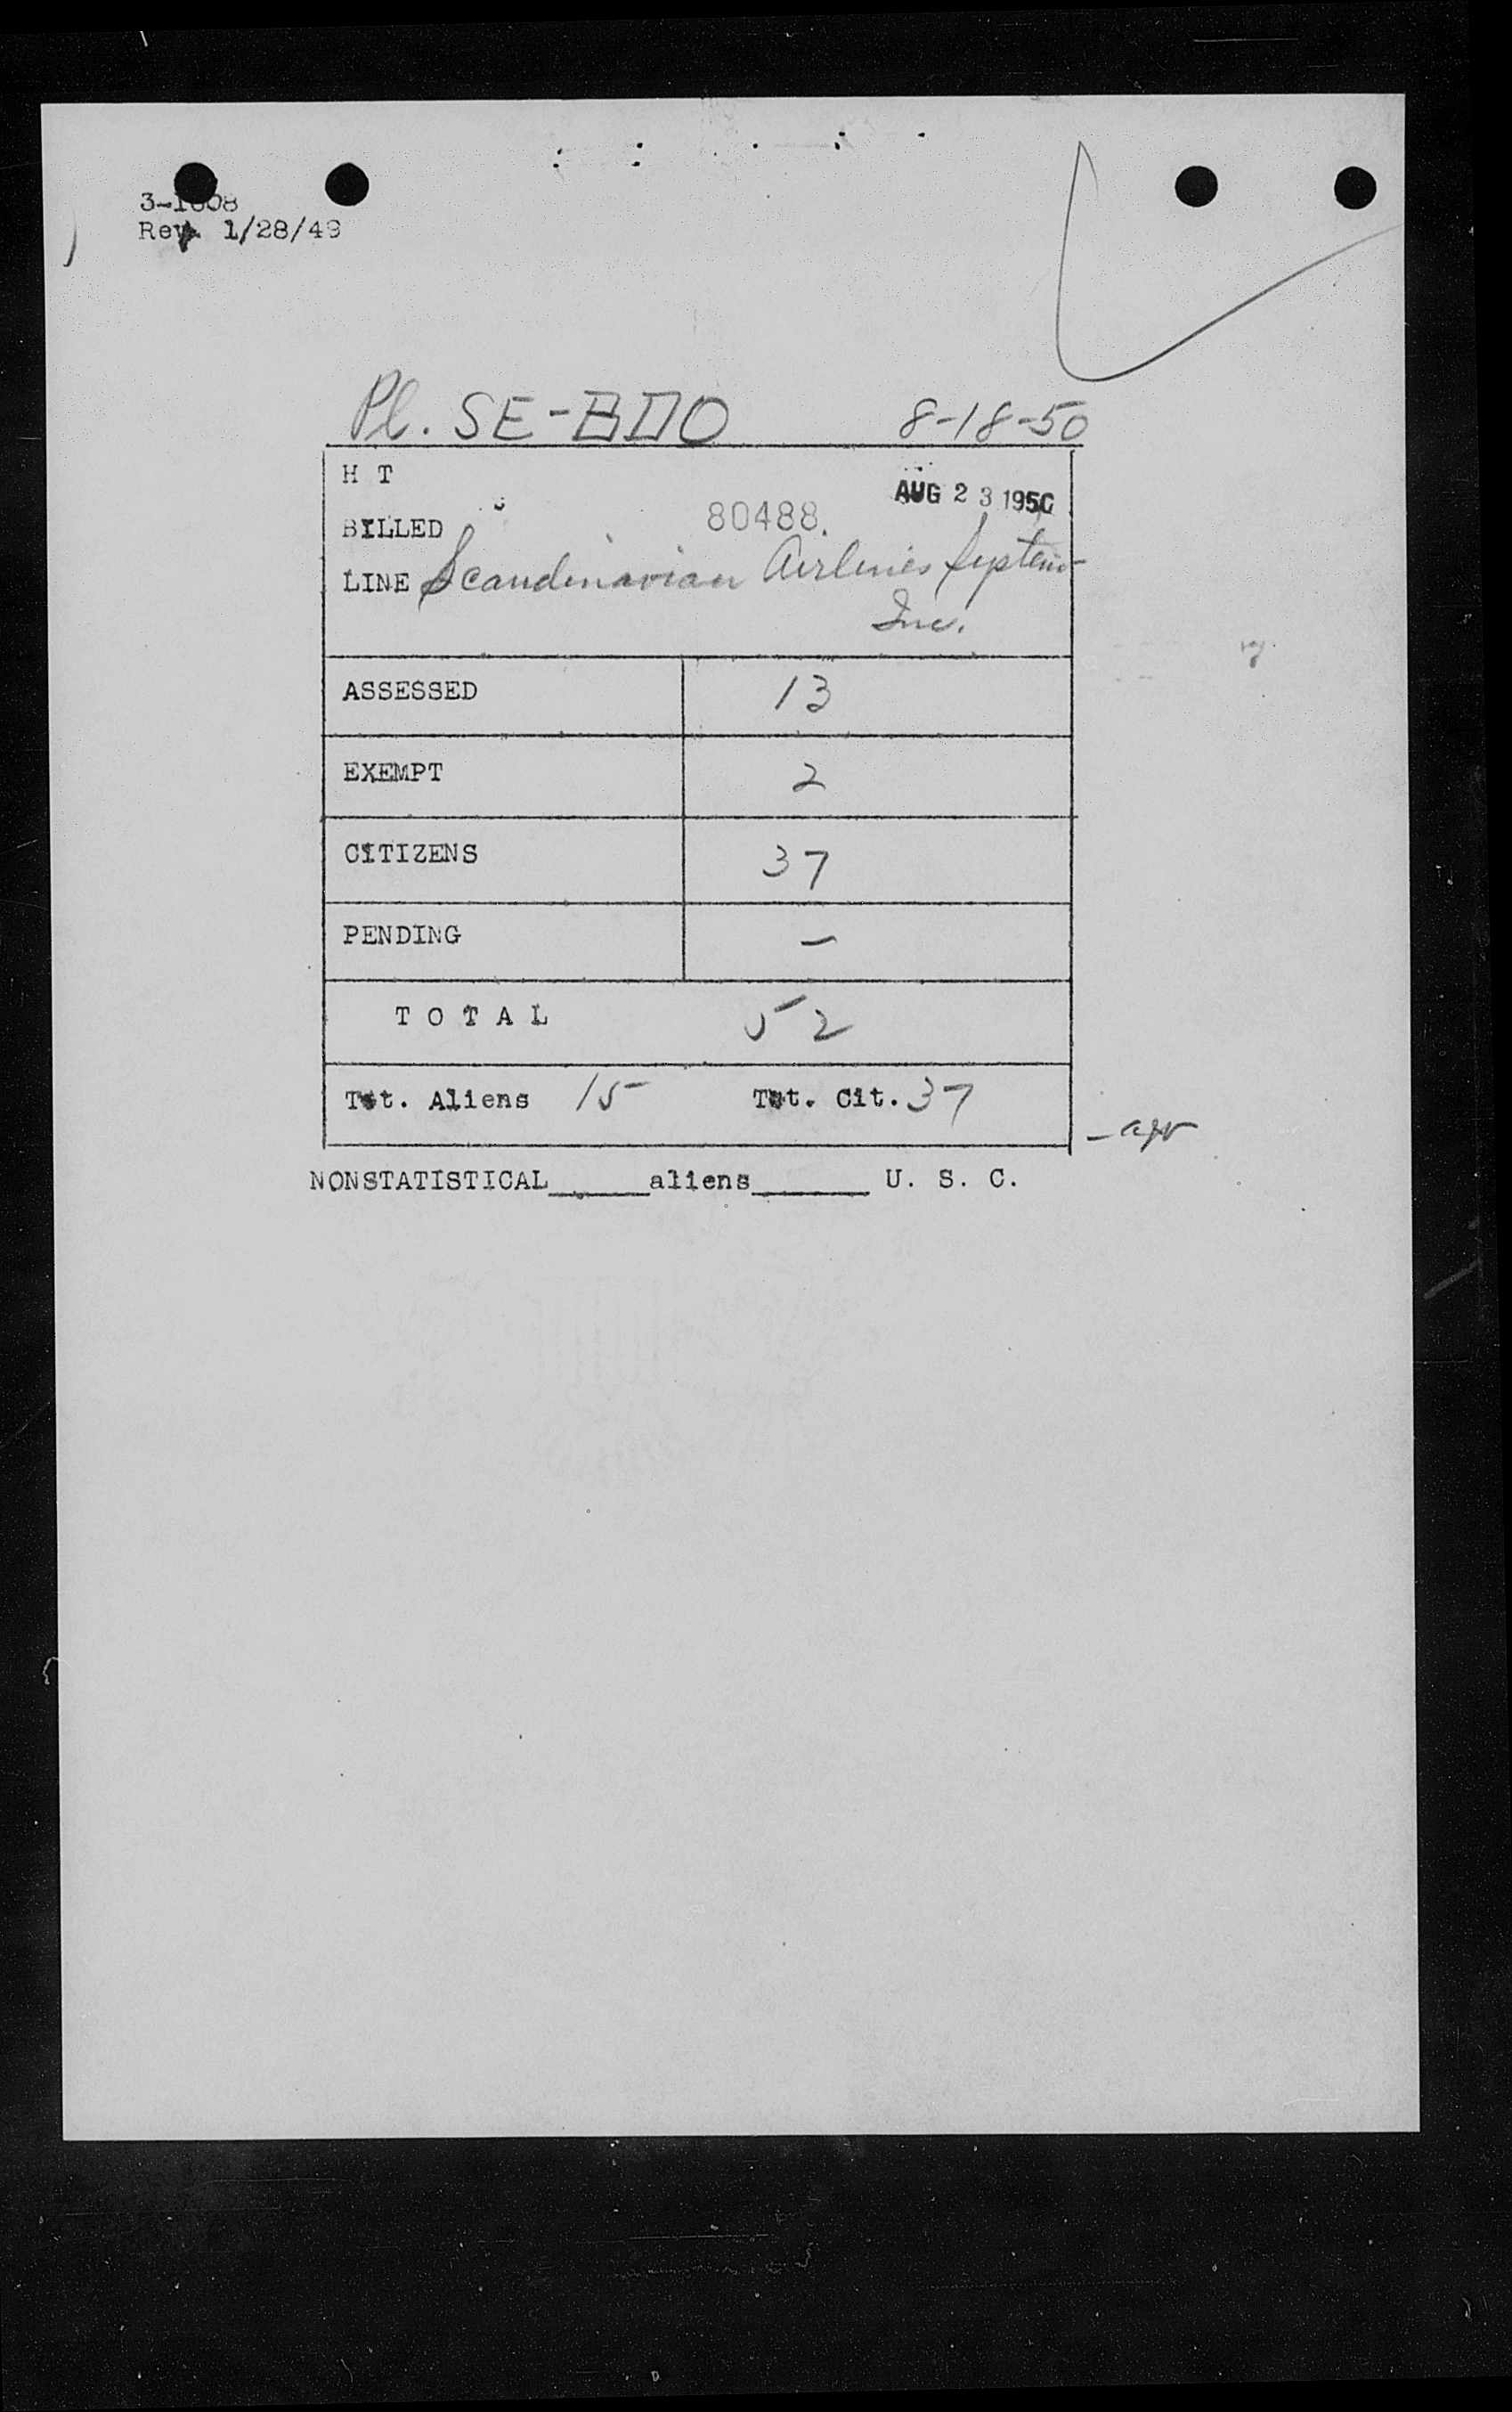 Rev. 1/28/49
Pl. SE-BDO 8-18-50
H T
AUG 23 1950
BILLED 80488.
LINE Scandinavian Airlines System
Inc.
ASSESSED 13
EXEMPT 2
CITIZENS 37
PENDING –
TOTAL 52
Tot. Aliens 15 Tot. Cit. 37
NONSTATISTICAL______aliens_______ U. S. C.